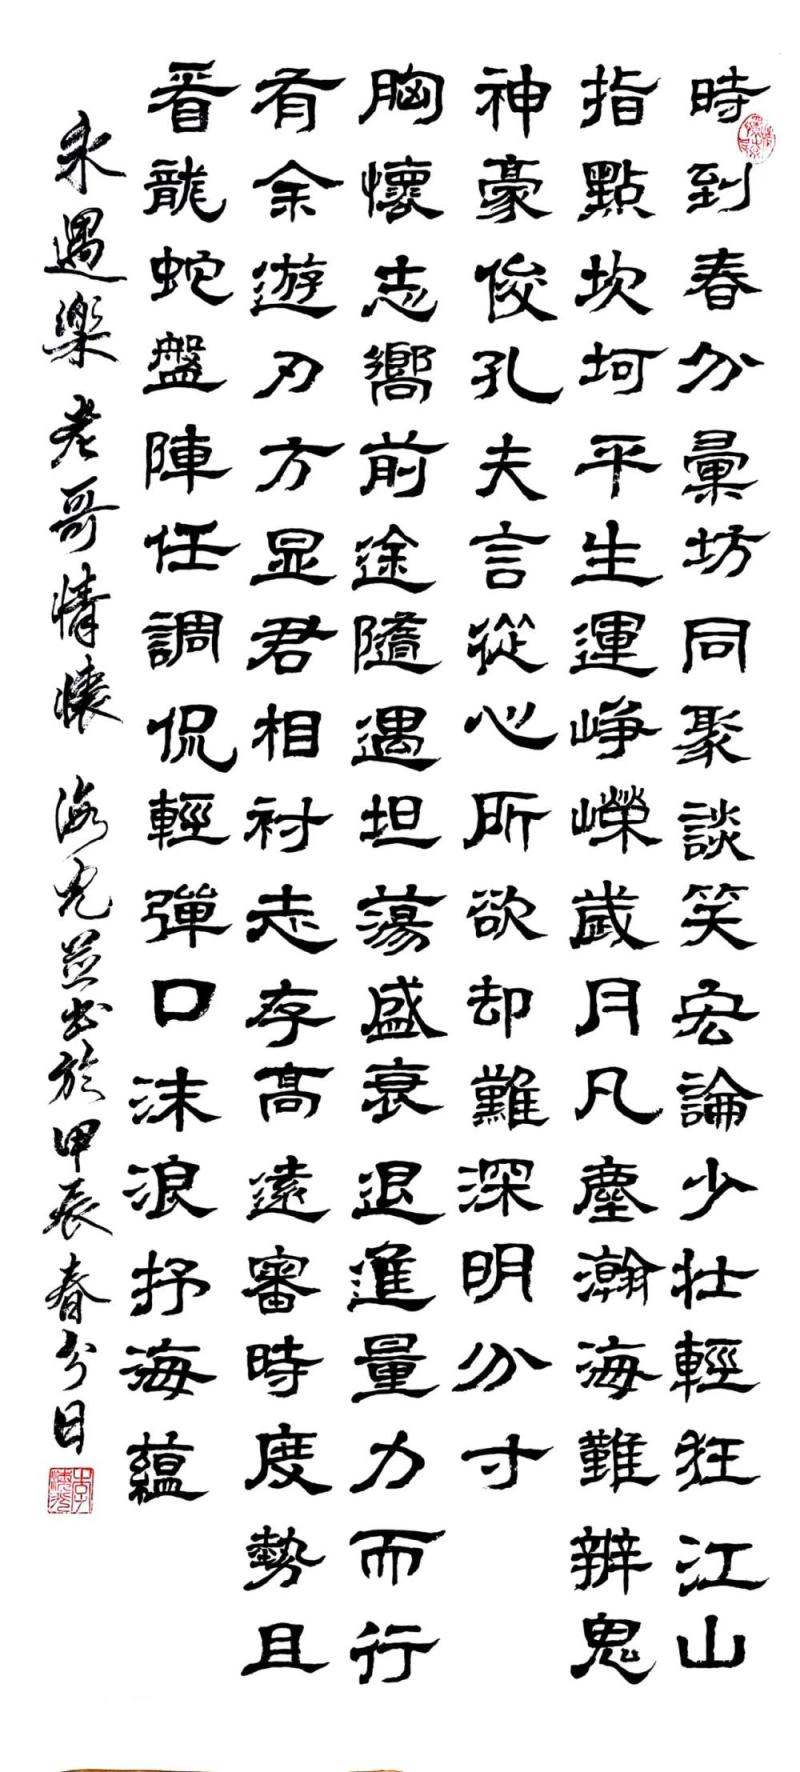 時到春分彙坊同聚談笑宏論少壯輕狂江山
指點坎坷平生運崢嶸歲月凡塵瀚海難辨鬼
神豪俊孔夫言從心所欲却難深明分寸
胸懷志嚮前途隨遇坦蕩盛衰退進量力而行
有余遊刃方显君相衬志存高遠審時度勢且
看龍蛇盤陣任調侃輕彈口沫浪抒海蘊
永遇樂 老哥情懷 海光並书於甲辰春分日